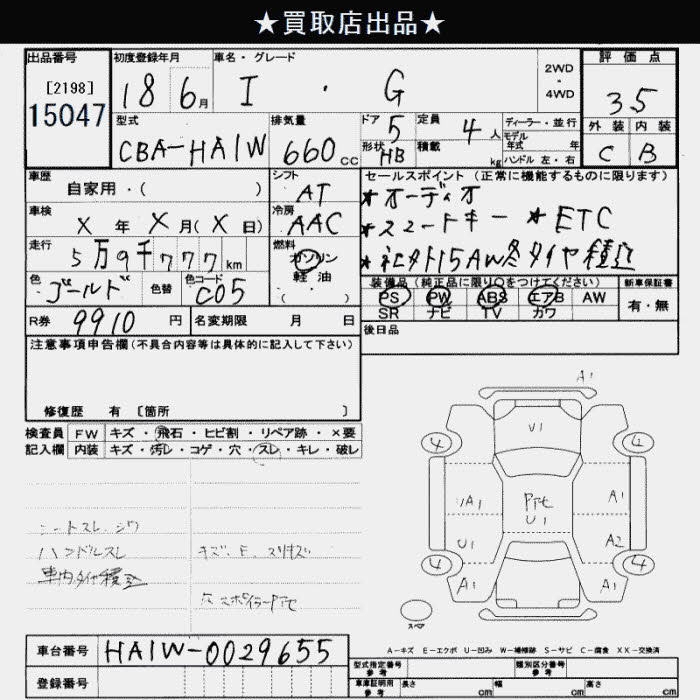 ★買取店出品★
出品番号 初度登録年月 車名・グレード 2WD ・ 4WD 評価点
[2198] 15047 18 6月 I ・ G 35
型式 排気量 ドア 定員 ディーラー・並行 外装 内装
CBA-HA1W 660cc 5 4人 モデル年式 年式 C B
形状 HB 積載 kg ハンドル 左・右
車歴 シフト セールスポイント (正常に機能するものに限ります)
自家用・( ) AT *オーディオ
車検 冷房 *スマートキー *ETC
X 年 X 月(X 日) AAC
走行 燃料 *社外15AW冬タイヤ積込
5万9千777km ガソリン
軽油
( )
色 色替 色コード 装備品(純正品に限り○をつけてください) 新車保証書
ゴールド C05 PS PW ABS エアB AW 有・無
SR ナビ TV カワ
R券 9910円 名変期限 月 日 後日品
注意事項申告欄(不具合内容等は具体的に記入して下さい)
修復歴 有 [箇所 ]
検査員 FW キズ・飛石・ヒビ割・リペア跡・×要
記入欄 内装 キズ・汚レ・コゲ・穴・スレ・キレ・破レ
A1
U1
4 4
A1 A1
U1
U1 A2
4 4
A1 A1
スペア
シートスレ、シワ
ハンドルスレ キズ、E、スリキズ
車内タイヤ積込
車台番号 HA1W-0029655
A-キズ E-エクボ U-凹み W-補修跡 S-サビ C-腐食 XX-交換済
登録番号 型式指定番号 参考 類別区分番号 参考
車庫証明用 参考 長さ cm 幅 cm 高さ cm